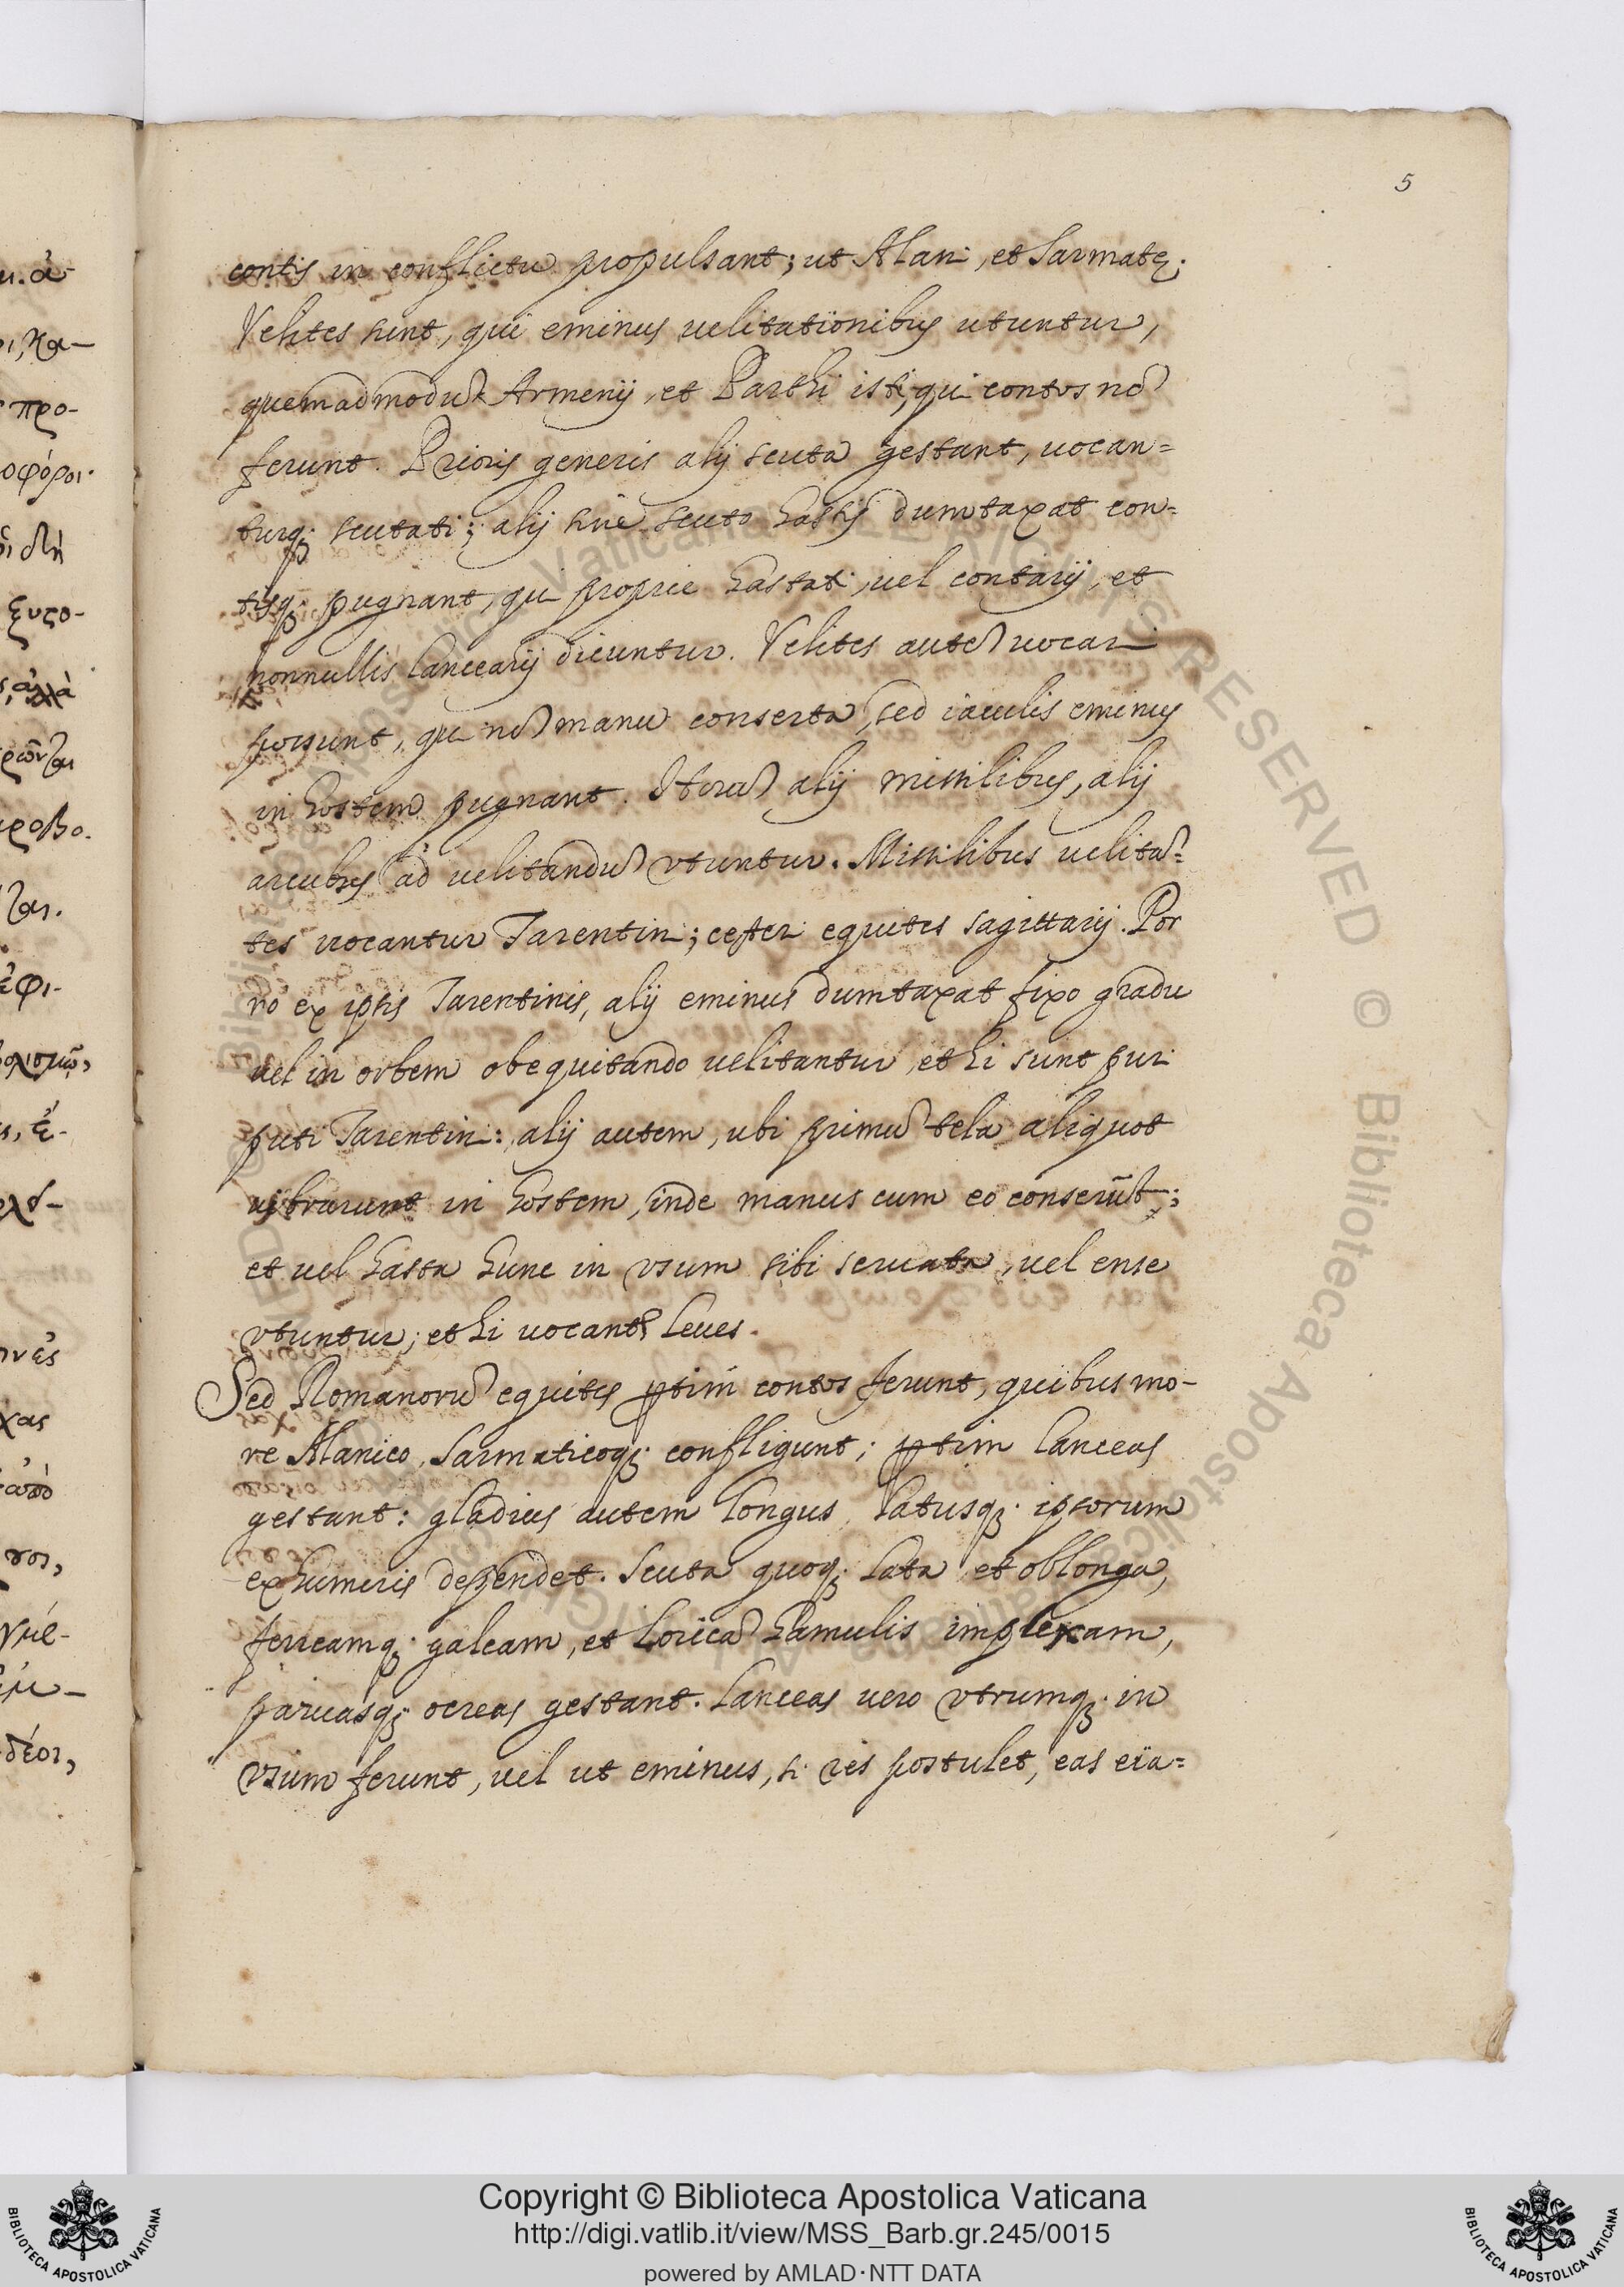 5
contis in conflictu propulsant; ut Alani, et Sarmatę.
Velites sunt, qui eminus uelitationibus utuntur,
quemadmodũ Armenij, et Parthi isti, qui contos nõ
ferunt. Prioris generis alij scuta gestant, uocan=
turq; scutati; alij sine scuto hastis dumtaxat con=
tisq; pugnant, qui proprie hastati, uel contarij, et
nonnullis lancearij dicuntur. Velites autẽ uocari
possunt, qui nõ manu conserta, sed iaculis eminus
in hostem pugnant. Horũ alij missilibus, alij
arcubus ad uelitandũ vtuntur. Missilibus uelitã=
tes uocantur Tarentini; cęteri equites sagittarij. Por
ro ex ipsis Tarentinis, alij eminus dumtaxat fixo gradu
uel in orbem obequitando uelitantur, et hi sunt puri
puti Tarentini: alij autem, ubi primũ tela aliquot
uibrarunt in hostem, inde manus cum eo conserũt;
et uel hasta hunc in vsum sibi seruata, uel ense
vtuntur; et hi uocantr leues.
Sed Romanorũ equites ꝑtim contos ferunt, quibus mo-
re Alanico, Sarmaticoq; confligunt; ꝑtim lanceas
gestant: gladius autem longus, latusq; ipsorum
ex humeris dependet. Scuta quoq; lata et oblonga,
ferreamq; galeam, et loricã hamulis implexam,
paruasq; ocreas gestant. Lanceas uero vtrumq; in
vsum ferunt, uel ut eminus, si res postulet, eas eia=
ι. ἀ-
ι, κα-
προ-
οφόροι.
δὴ
ξυστο-
ἀλλὰ
ροβο.
ται.
ἐφι-
ολισμῷ,
νὲς
χας
ἀπὸ
γμέ-
δέοι,
© Biblioteca Apostolica Vaticana ALL RIGHTS RESERVED © Biblioteca Apostolica Vaticana ALL RIGHTS RESERVED
Copyright © Biblioteca Apostolica Vaticana
http://digi.vatlib.it/view/MSS_Barb.gr.245/0015
powered by AMLAD·NTT DATA
BIBLIOTECA APOSTOLICA VATICANA
BIBLIOTECA APOSTOLICA VATICANA